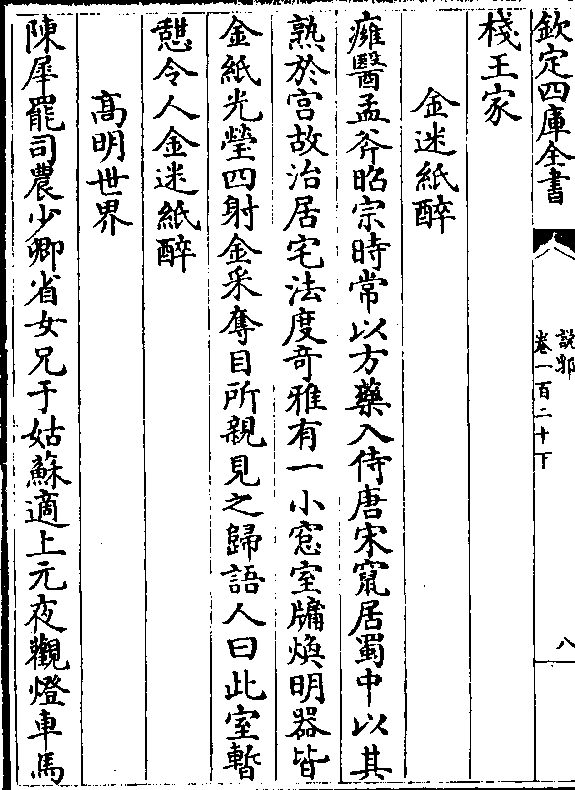 欽定四庫全書
説郛
卷一百二十下
八
棧王家
金迷紙醉
癰醫孟斧昭宗時常以方藥入侍唐宋竄居蜀中以其
熟於宫故治居宅法度奇雅有一小窓室牖焕明器皆
金紙光瑩四射金采奪目所親見之歸語人曰此室暫
憇令人金迷紙醉
髙明世界
陳犀罷司農少卿省女兄于姑蘇適上元夜觀燈車馬